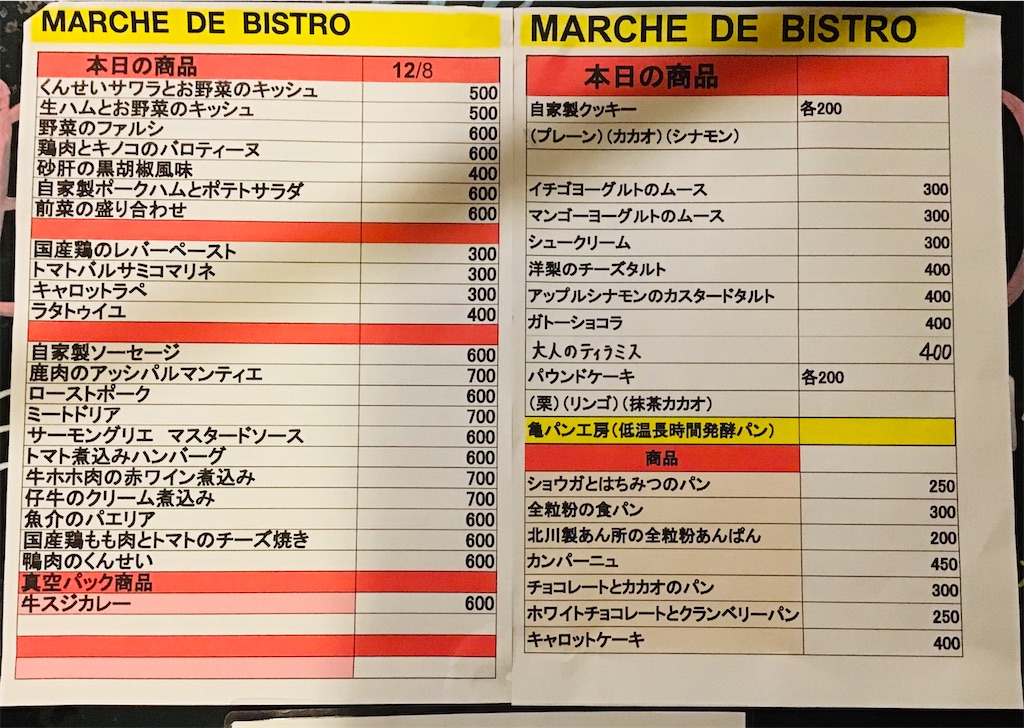 MARCHE DE BISTRO
本日の商品 12/8
くんせいサワラとお野菜のキッシュ 500
生ハムとお野菜のキッシュ 500
野菜のファルシ 600
鶏肉とキノコのバロティーヌ 600
砂肝の黒胡椒風味 400
自家製ポークハムとポテトサラダ 600
前菜の盛り合わせ 600
国産鶏のレバーペースト 300
トマトバルサミコマリネ 300
キャロットラペ 300
ラタトゥイユ 400
自家製ソーセージ 600
鹿肉のアッシパルマンティエ 700
ローストポーク 600
ミートドリア 700
サーモングリエ マスタードソース 600
トマト煮込みハンバーグ 600
牛ホホ肉の赤ワイン煮込み 700
仔牛のクリーム煮込み 700
魚介のパエリア 600
国産鶏もも肉とトマトのチーズ焼き 600
鴨肉のくんせい 600
真空パック商品
牛スジカレー 600
MARCHE DE BISTRO
本日の商品
自家製クッキー 各200
(プレーン)(カカオ)(シナモン)
イチゴヨーグルトのムース 300
マンゴーヨーグルトのムース 300
シュークリーム 300
洋梨のチーズタルト 400
アップルシナモンのカスタードタルト 400
ガトーショコラ 400
大人のティラミス 400
パウンドケーキ 各200
(栗)(リンゴ)(抹茶カカオ)
亀パン工房(低温長時間発酵パン)
商品
ショウガとはちみつのパン 250
全粒粉の食パン 300
北川製あん所の全粒粉あんぱん 200
カンパーニュ 450
チョコレートとカカオのパン 300
ホワイトチョコレートとクランベリーパン 250
キャロットケーキ 400